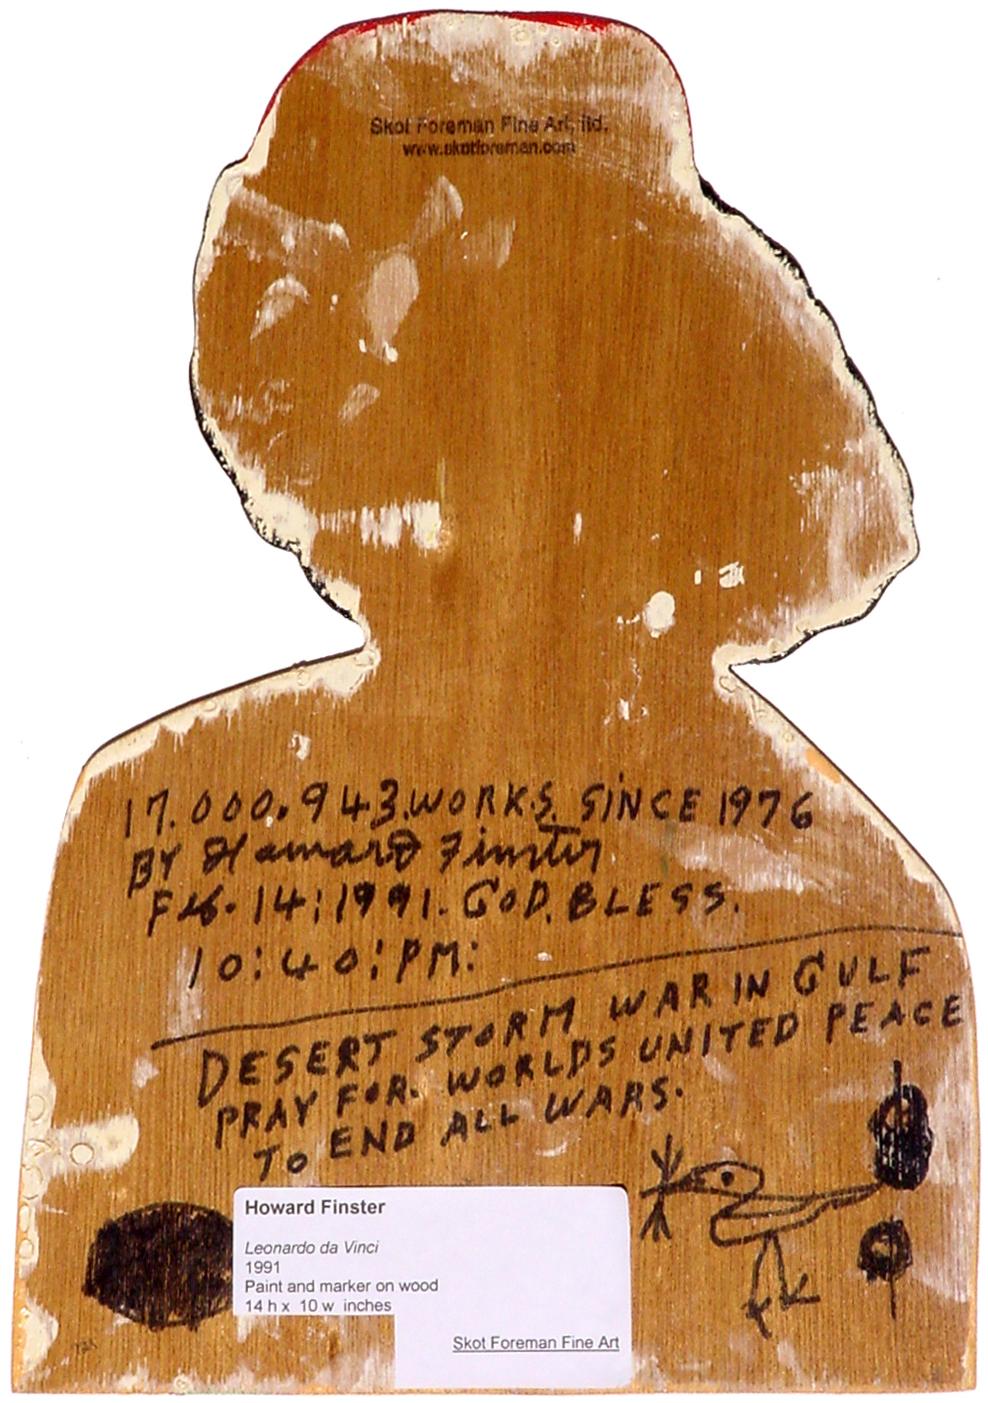 Skot Foreman Fine Art, ltd.
www.skotforeman.com
17.000.943.WORKS. SINCE 1976
BY Howard Finster
FEB. 14:1991. GOD. BLESS.
10:40:PM:
DESERT STORM WAR IN GULF
PRAY FOR. WORLDS UNITED PEACE
TO END ALL WARS.
Howard Finster
Leonardo da Vinci
1991
Paint and marker on wood
14 h x 10 w inches
Skot Foreman Fine Art